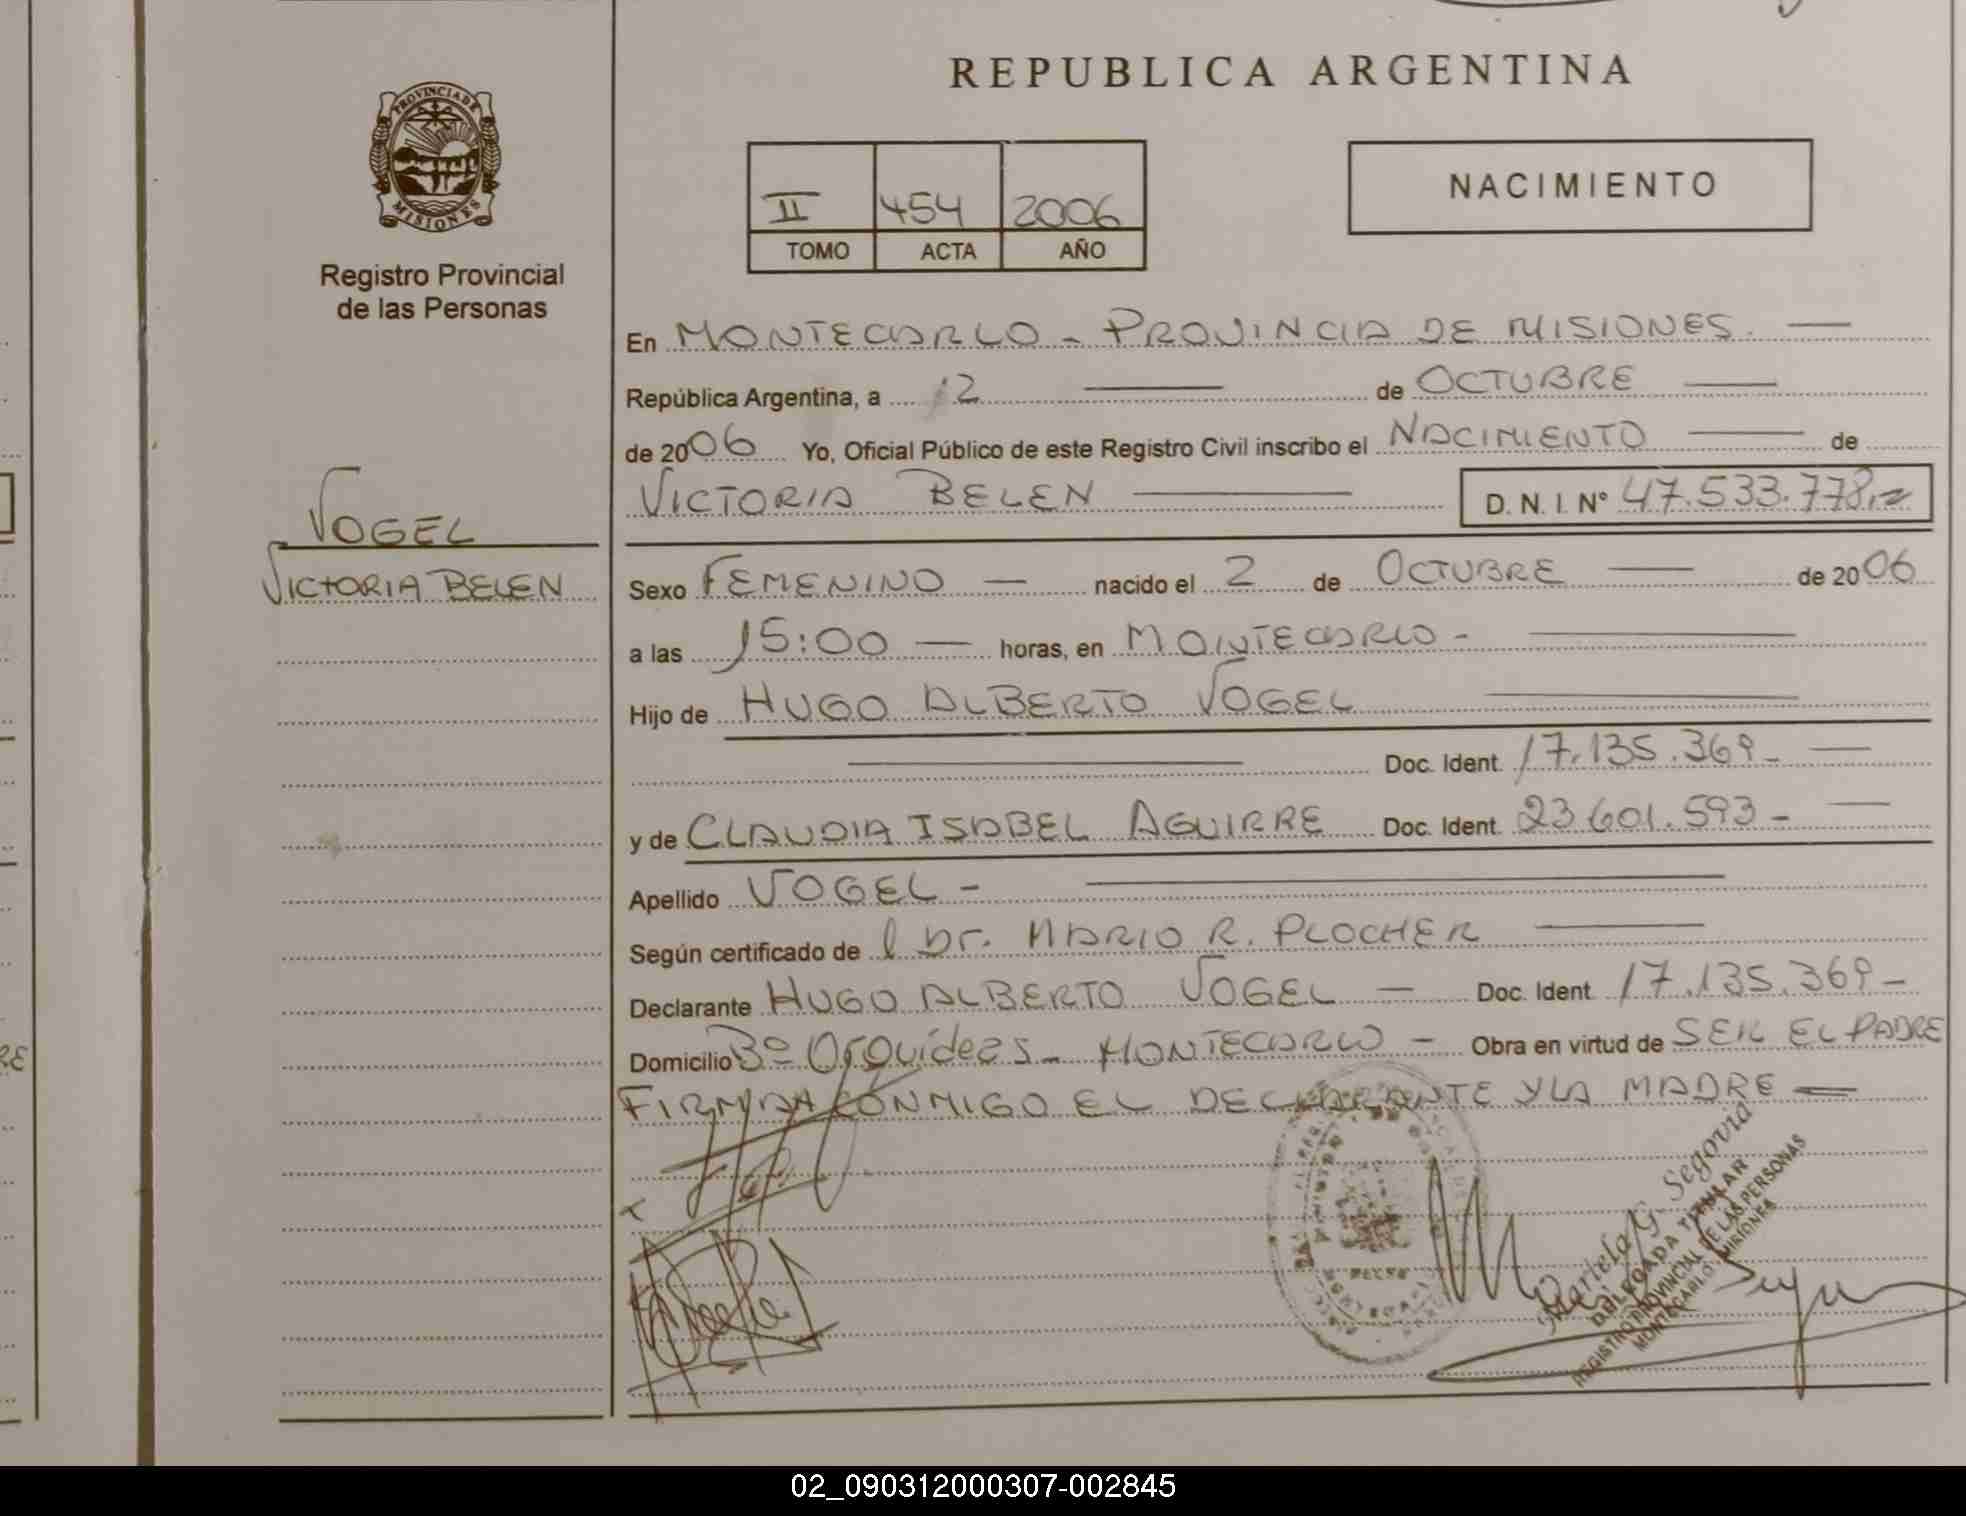 REPUBLICA ARGENTINA
PROVINCIA DE
MISIONES
Registro Provincial
de las Personas
II 454 2006
TOMO ACTA AÑO
NACIMIENTO
En MONTECARLO - PROVINCIA DE MISIONES.
República Argentina, a 12 de OCTUBRE
de 2006 Yo, Oficial Público de este Registro Civil inscribo el NACIMIENTO de
VICTORIA BELEN D. N. I. N° 47.533.778.
VOGEL
VICTORIA BELEN
Sexo FEMENINO nacido el 2 de OCTUBRE de 2006
a las 15:00 horas, en MONTECARLO -
Hijo de HUGO ALBERTO VOGEL
Doc. Ident. 17.135.369-
y de CLAUDIA ISABEL AGUIRRE Doc. Ident. 23.601.593-
Apellido VOGEL -
Según certificado de l Dr. MARIO R. PLOCHER
Declarante HUGO ALBERTO VOGEL Doc. Ident. 17.135.369-
Domicilio Bº Orquídeas - MONTECARLO - Obra en virtud de SER EL PADRE
FIRMAN CONMIGO EL DECLARANTE Y LA MADRE
Mariela G. Segovia
DELEGADA TITULAR
REGISTRO PROVINCIAL DE LAS PERSONAS
MONTECARLO - MISIONES
RE
02_090312000307-002845